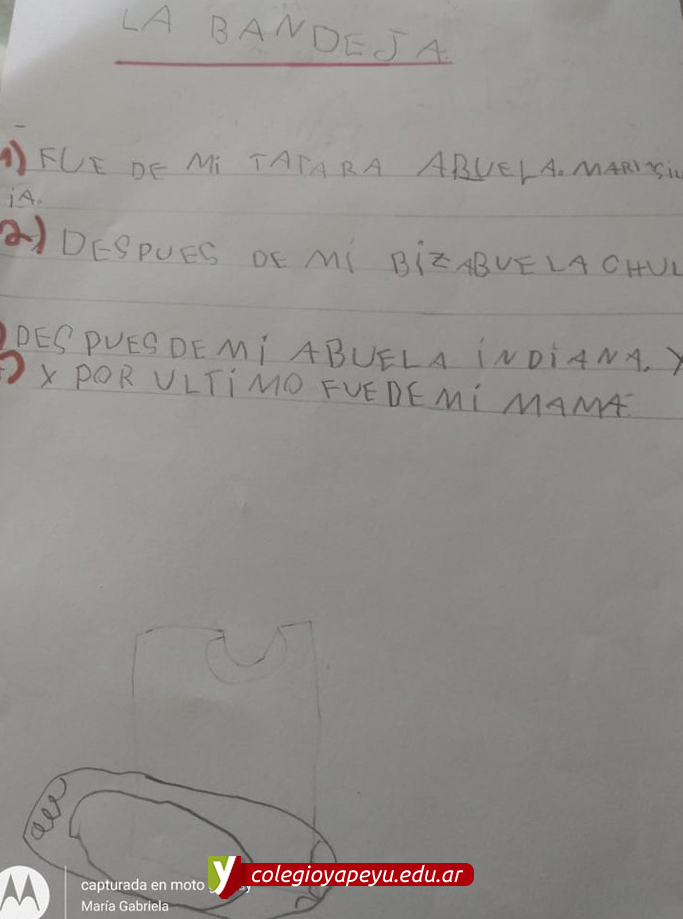 LA BANDEJA.
1) FUE DE Mi TATARA ABUELA. MARI
iA.
2) DESPUES DE Mi BiZABUELA CHUL
DESPUES DE Mi ABUELA iNDiANA. Y
Y POR ULTiMO FUE DE Mi MAMA.
capturada en moto
María Gabriela
y colegioyapeyu.edu.ar